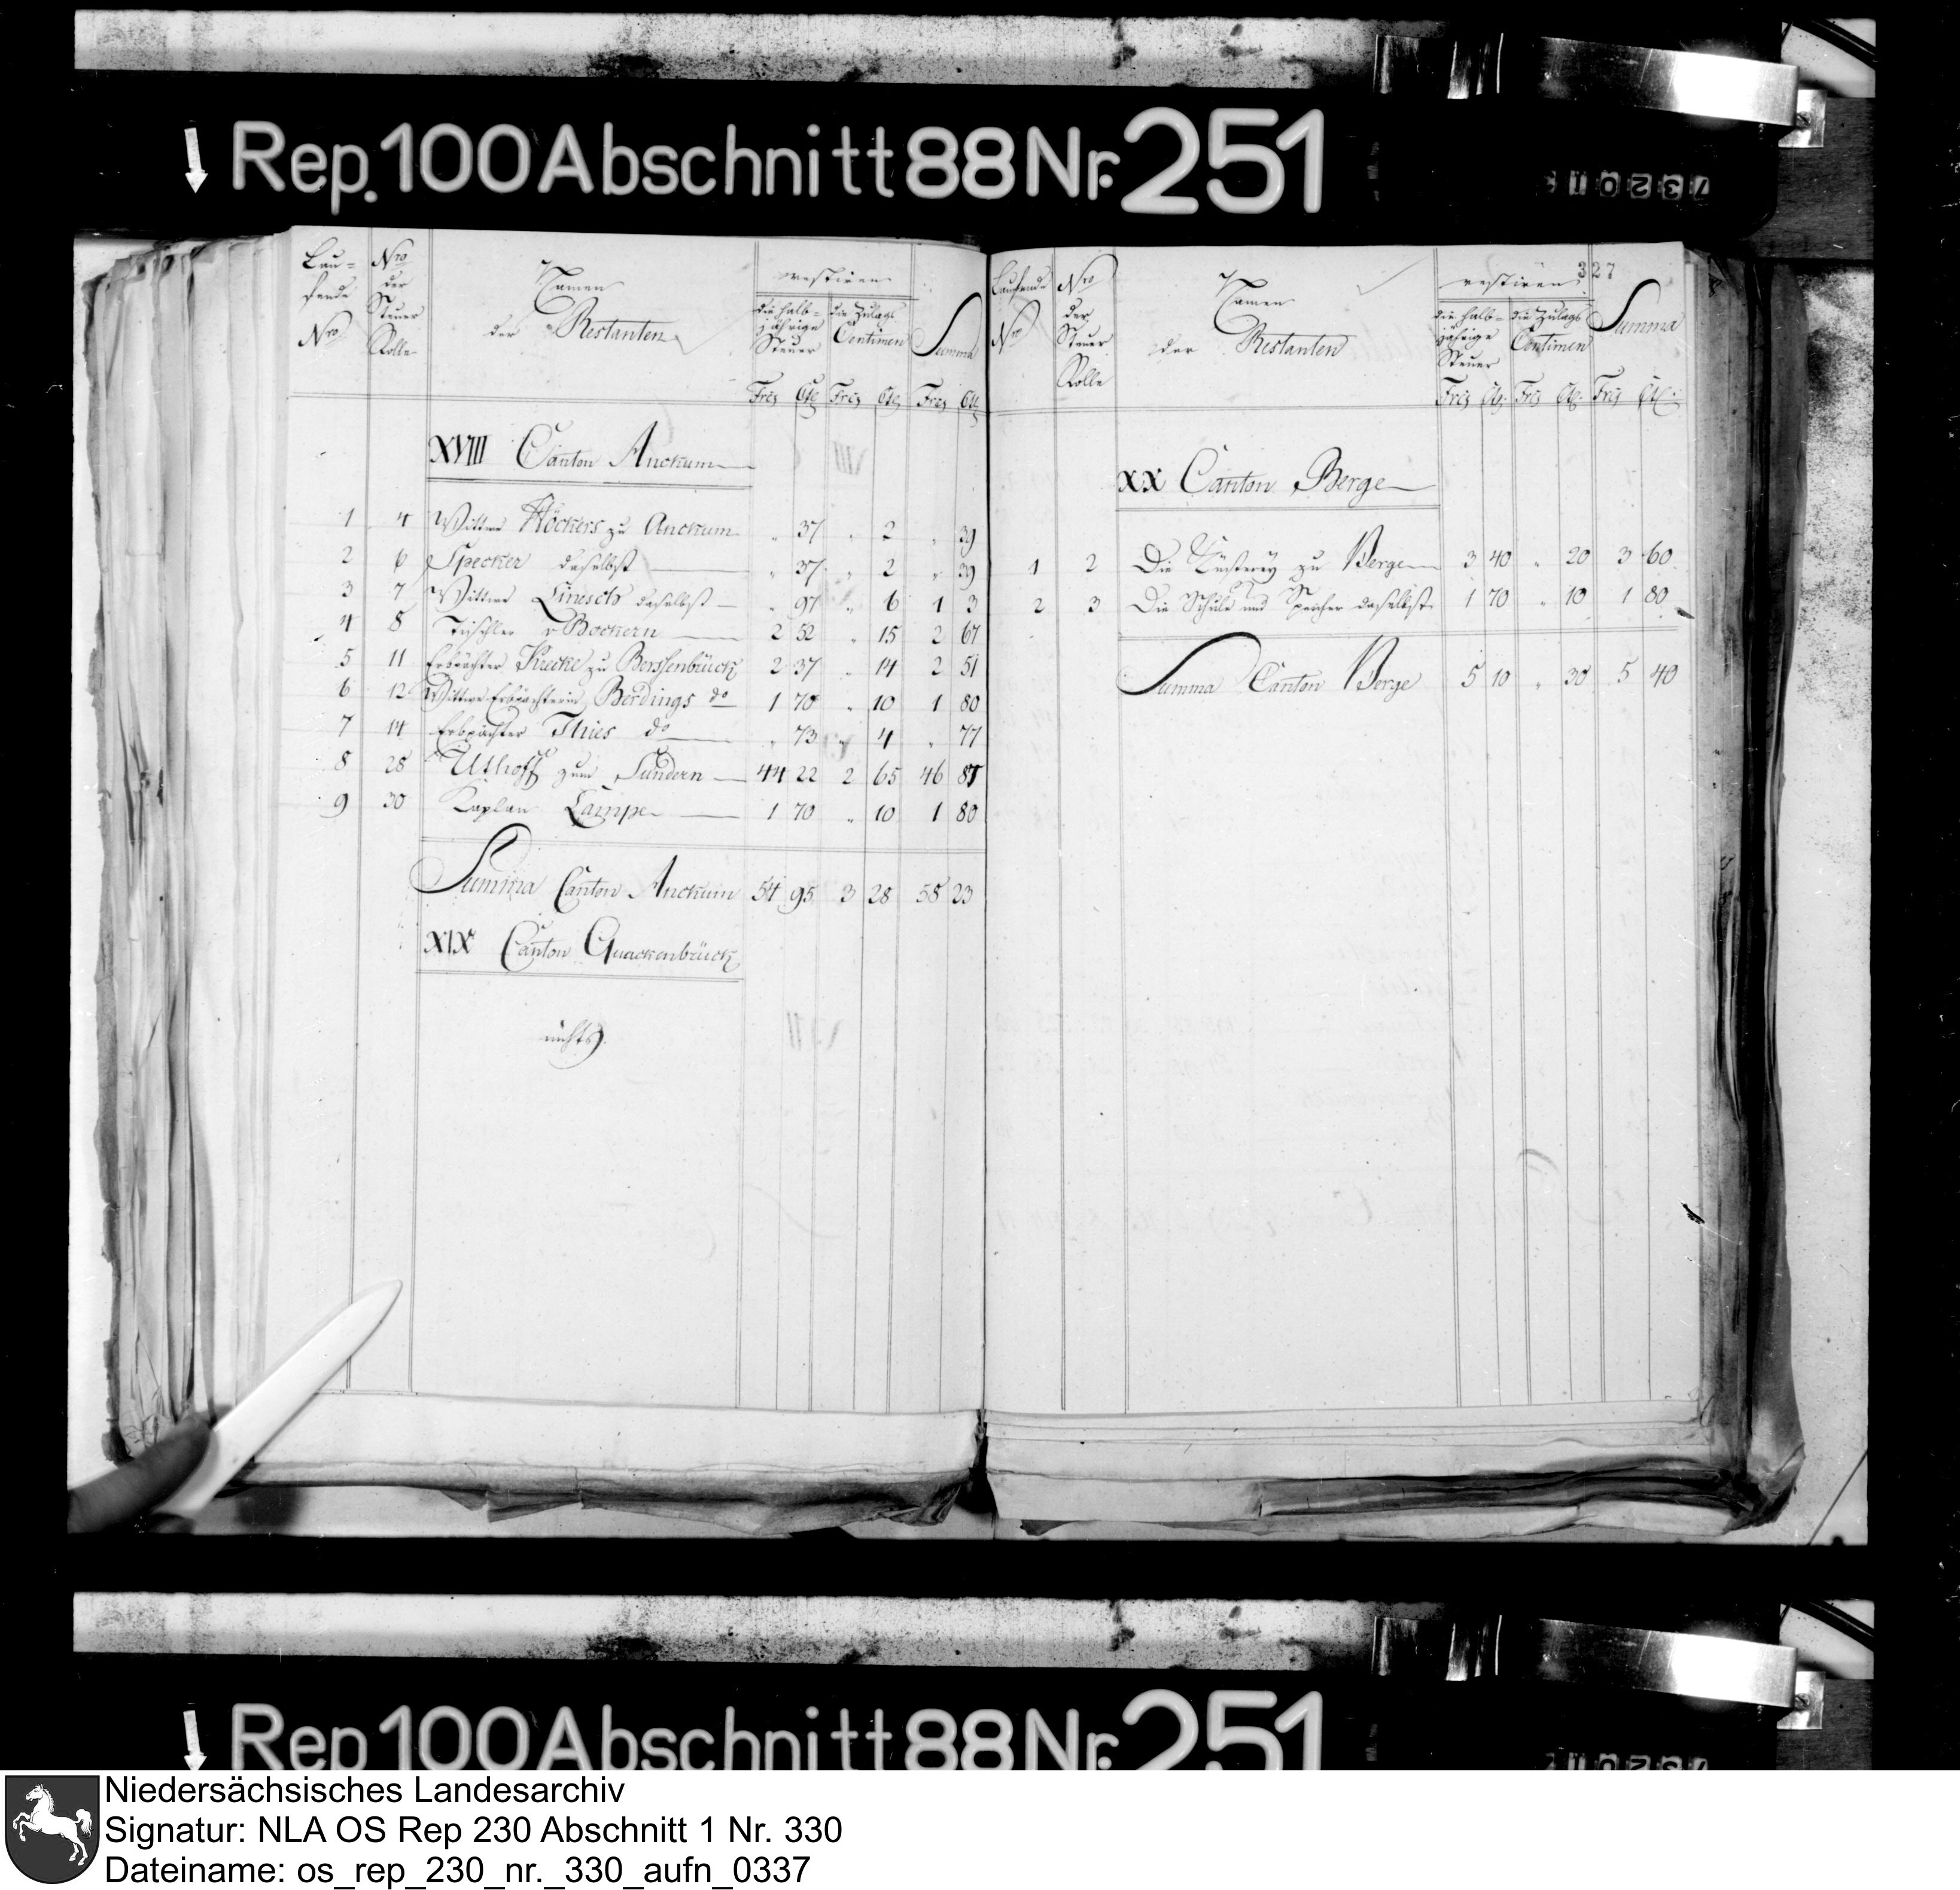 Rep. 100 Abschnitt 88 Nr. 251
Lau=
fende
Nro
Nro
der
Steuer
Rolle
Namen
der Restanten
restiren
die halb=
jährige
Steuer
die Zulags
Centimen
Summa
Frcs Cts Frcs Cts Frcs Cts
XVIII Canton Anckum
1 4 Wittwe Höckers zu Anckum " 37 " 2 " 39
2 6 Specker daselbst " 37 " 2 " 39
3 7 Wittwe daselbst " 97 " 6 1 3
4 8 Tischler v Bockern 2 52 " 15 2 67
5 11 Erbpächter Krecke zu Berssenbrück 2 37 " 14 2 51
6 12 Wittwe Erbpächterin Berdings do 1 70 " 10 1 80
7 14 Erbpächter Thies do " 73 " 4 " 77
8 28 Uthoff zum Sundern 44 22 2 65 46 87
9 30 Kaplan Lampe 1 70 " 10 1 80
Summa Canton Anckum 54 95 3 28 58 23
XIX Canton Quackenbrück
nichts.
327
Laufende
Nro
Nro
der
Steuer
Rolle
Namen
der Restanten
restiren
die halb=
jährige
Steuer
die Zulags
Centimen
Summa
Frcs Cts Frcs Cts Frcs Cts
XX Canton Berge
1 2 Die Küsterey zu Berge 3 40 " 20 3 60
2 3 Die Schule und Speicher daselbst 1 70 " 10 1 80
Summa Canton Berge 5 10 " 30 5 40
Rep. 100 Abschnitt 88 Nr. 251
Niedersächsisches Landesarchiv
Signatur: NLA OS Rep 230 Abschnitt 1 Nr. 330
Dateiname: os_rep_230_nr._330_aufn_0337